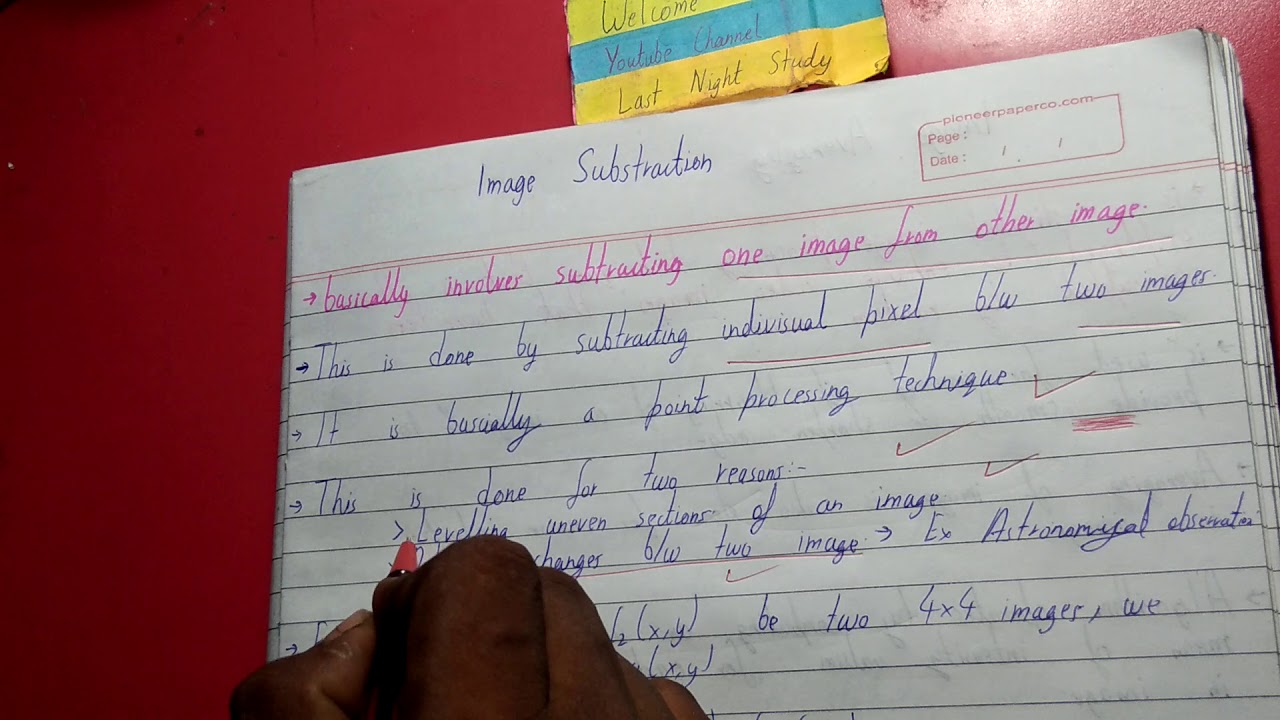 Welcome
Youtube Channel
Last Night Study
pioneerpaperco.com
Page :
Date :
Image Substraction
→ basically involves subtracting one image from other image.
→ This is done by subtracting indivisual pixel b/w two images.
→ It is basically a point processing technique
→ This is done for two reasons:-
> Levelling uneven sections of an image
changes b/w two image → Ex Astronomical
(x,y) be two 4x4 images, we
(x,y)